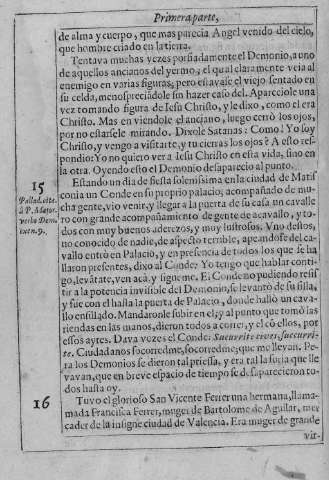 Primera parte,
de alma y cuerpo, que mas parecia Angel venido del cielo,
que hombre criado en la tierra.
Tentava muchas vezes porfiadamente el Demonio, a uno
de aquellos ancianos del yermo; el qual claramente veia al
enemigo en varias figuras, pero estavase el viejo sentado en
su celda, menospreciãdole sin hazer caso del. Apareciole una
vez tomando figura de Iesu Christo, y le dixo, como el era
Christo. Mas en viendole el anciano, luego cerrò los ojos,
por no estarsele mirando. Dixole Satanas: Como! Yo soy
Christo, y vengo a visitarte, y tu cierras los ojos? A esto res-
pondio: Yo no quiero ver a Iesu Christo en esta vida, sino en
la otra. Oyendo esto el Demonio desapareciò al punto.
15
Estando un dia de fiesta solenissima en la ciudad de Matis
conia un Conde en su proprio palacio, acompañado de mu-
cha gente, vio venir, y llegar a la puerta de su casa un cavalle
ro con grande acompañamiento de gente de acavallo, y to-
dos con muy buenos aderezos, y muy lustrosos. Vno destos,
no conocido de nadie, de aspecto terrible, apeandose del ca-
vallo entrò en Palacio, y en presencia de todos los que se ha
llaron presentes, dixo al Conde: Yo tengo que hablar conti-
go, levãtate, ven acà, y sigueme. El Conde no pudiendo resis
tir a la potencia invisible del Demonio, se levantò de su silla,
y fue con el hasta la puerta de Palacio, donde hallò un cava-
llo ensillado. Mandaronle subir en el; y al punto que tomò las
riendas en las manos, dieron todos a correr, y el cõ ellos, por
essos ayres. Dava vozes el Conde: Succurrite cives, succurri-
te. Ciudadanos socorredme, socorredme, que me llevan. Pe-
ra los Demonios se dieron tal priessa, y era tal la furia que lle
vavan, que en breve espacio de tiempo se desaparecieron to-
dos hasta oy.
16
Tuvo el glorioso San Vicente Ferrer una hermana, llama-
mada Francisca Ferrer, muger de Bartolome de Aguilar, mer
cader de la insigne ciudad de Valencia. Era muger de grande
vir-